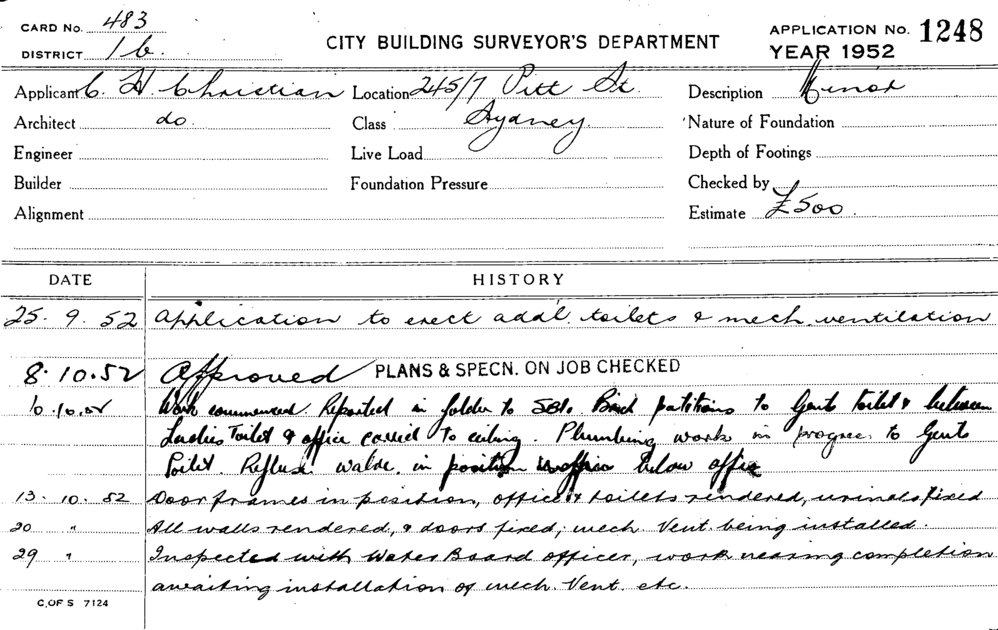 CARD No. 483
DISTRICT 1 b.
CITY BUILDING SURVEYOR'S DEPARTMENT
APPLICATION No. 1248
YEAR 1952
Applicant C. H Christian Location 245/7 Pitt St. Description Minor
Architect do. Class Sydney. Nature of Foundation
Engineer Live Load Depth of Footings
Builder Foundation Pressure Checked by
Alignment Estimate £500
DATE HISTORY
25. 9. 52 Application to erect addl. toilets & mech. ventilation
8. 10. 52 Approved PLANS & SPECN. ON JOB CHECKED
10.52 Work commenced. Reported in folder to Brick partitions to Gents toilet & between
Ladies Toilet & office carried to ceiling. Plumbing work in progress to Gents
Toilet. in position below office
13. 10. 52 Door frames in position, office & toilets rendered, urinals fixed
20 " All walls rendered, & doors fixed, mech. Vent. being installed.
29 " Inspected with Water Board officer, work nearing completion
awaiting installation of mech. Vent. etc.
C. OF S 7124